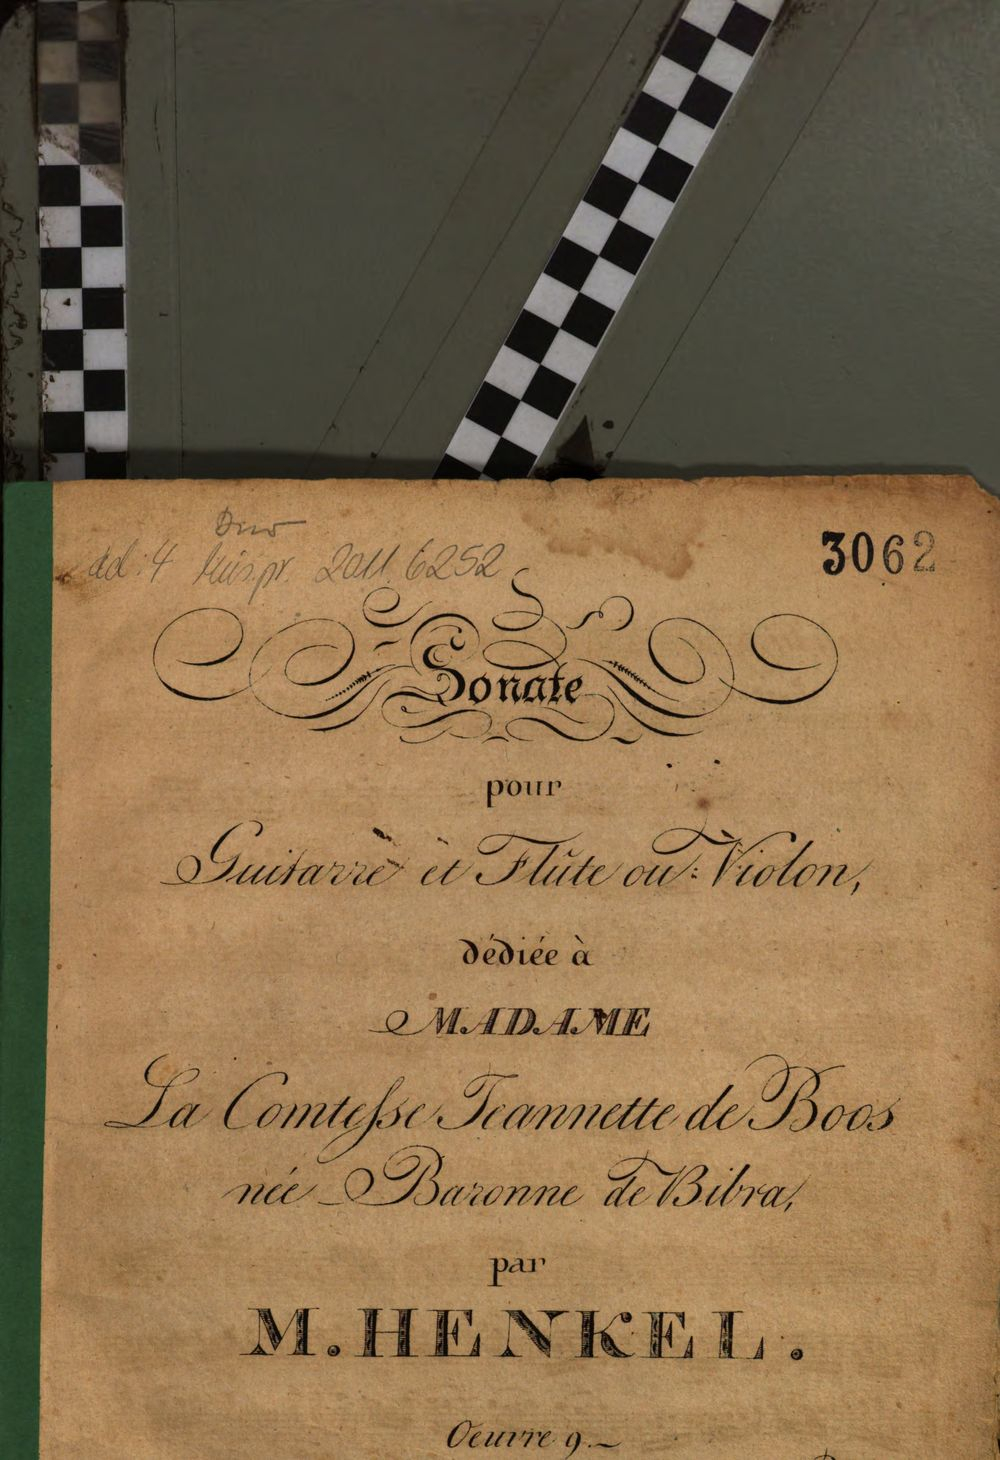 4 Mus.pr. 2011.6252
3062
Sonate
pour
Guitarre et Flûte ou Violon,
dédiée à
MADAME
La Comtesse Jeannette de Boos
née Baronne de Bibra,
par
M. HENKEL.
Oeuvre 9.